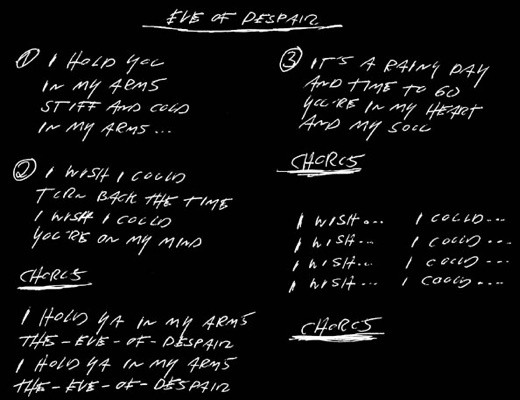 EVE OF DESPAIR
① I HOLD YOU
IN MY ARMS
STIFF AND COLD
IN MY ARMS...
② I WISH I COULD
TURN BACK THE TIME
I WISH I COULD
YOU'RE ON MY MIND
CHORUS
I HOLD YA IN MY ARMS
THE-EVE-OF-DESPAIR
I HOLD YA IN MY ARMS
THE-EVE-OF-DESPAIR
③ IT'S A RAINY DAY
AND TIME TO GO
YOU'RE IN MY HEART
AND MY SOUL
CHORUS
I WISH... I COULD...
I WISH... I COULD...
I WISH... I COULD...
I WISH... I COULD...
CHORUS